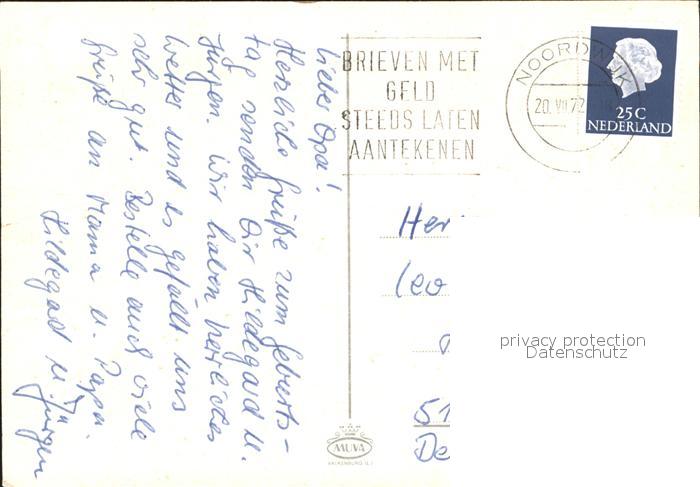 Lieber Opa!
Herzliche Grüße zum Geburts-
tag senden Dir Hildegard u.
Jürgen. Wir haben herrliches
Wetter und es gefällt uns
sehr gut. Bestelle auch viele
Grüße an Mama u. Papa.
Hildegard u. Jürgen
BRIEVEN MET
GELD
STEEDS LATEN
AANTEKENEN
NOORDWIJK
20. VII 72
25 C
NEDERLAND
Her
Leo
51
De
privacy protection
Datenschutz
MUVA
VALKENBURG (L.)